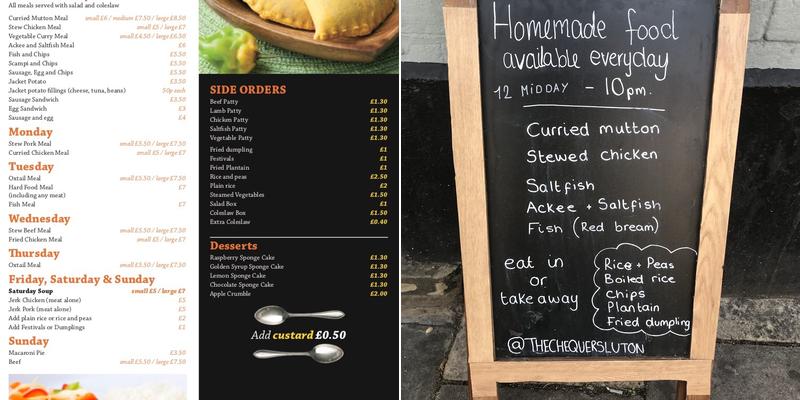 All meals served with salad and coleslaw
Curried Mutton Meal small £6 / medium £7.50 / large £8.50
Stew Chicken Meal small £5 / large £7
Vegetable Curry Meal small £4.50 / large £6.50
Ackee and Saltfish Meal £6
Fish and Chips £5.50
Scampi and Chips £5.50
Sausage, Egg and Chips £5.50
Jacket Potato £3.50
Jacket potato fillings (cheese, tuna, beans) 50p each
Sausage Sandwich £3.50
Egg Sandwich £3
Sausage and egg £4
Monday
Stew Pork Meal small £5.50 / large £7.50
Curried Chicken Meal small £5 / large £7
Tuesday
Oxtail Meal small £5.50 / large £7.50
Hard Food Meal £7
(including any meat)
Fish Meal £7
Wednesday
Stew Beef Meal small £5.50 / large £7.50
Fried Chicken Meal small £5 / large £7
Thursday
Oxtail Meal small £5.50 / large £7.50
Friday, Saturday & Sunday
Saturday Soup small £5 / large £7
Jerk Chicken (meat alone) £5
Jerk Pork (meat alone) £5
Add plain rice or rice and peas £2
Add Festivals or Dumplings £1
Sunday
Macaroni Pie £3.50
Beef small £5.50 / large £7.50
SIDE ORDERS
Beef Patty £1.30
Lamb Patty £1.30
Chicken Patty £1.30
Saltfish Patty £1.30
Vegetable Patty £1.30
Fried dumpling £1
Festivals £1
Fried Plantain £1
Rice and peas £2.50
Plain rice £2
Steamed Vegetables £1.50
Salad Box £1
Coleslaw Box £1.50
Extra Coleslaw £0.40
Desserts
Raspberry Sponge Cake £1.30
Golden Syrup Sponge Cake £1.30
Lemon Sponge Cake £1.30
Chocolate Sponge Cake £1.30
Apple Crumble £2.00
Add custard £0.50
Homemade food
available everyday
12 MIDDAY - 10pm.
Curried mutton
Stewed chicken
Saltfish
Ackee + Saltfish
Fish (Red bream)
eat in
or
take away
Rice + Peas
Boiled rice
chips
Plantain
Fried dumpling
@THECHEQUERSLUTON